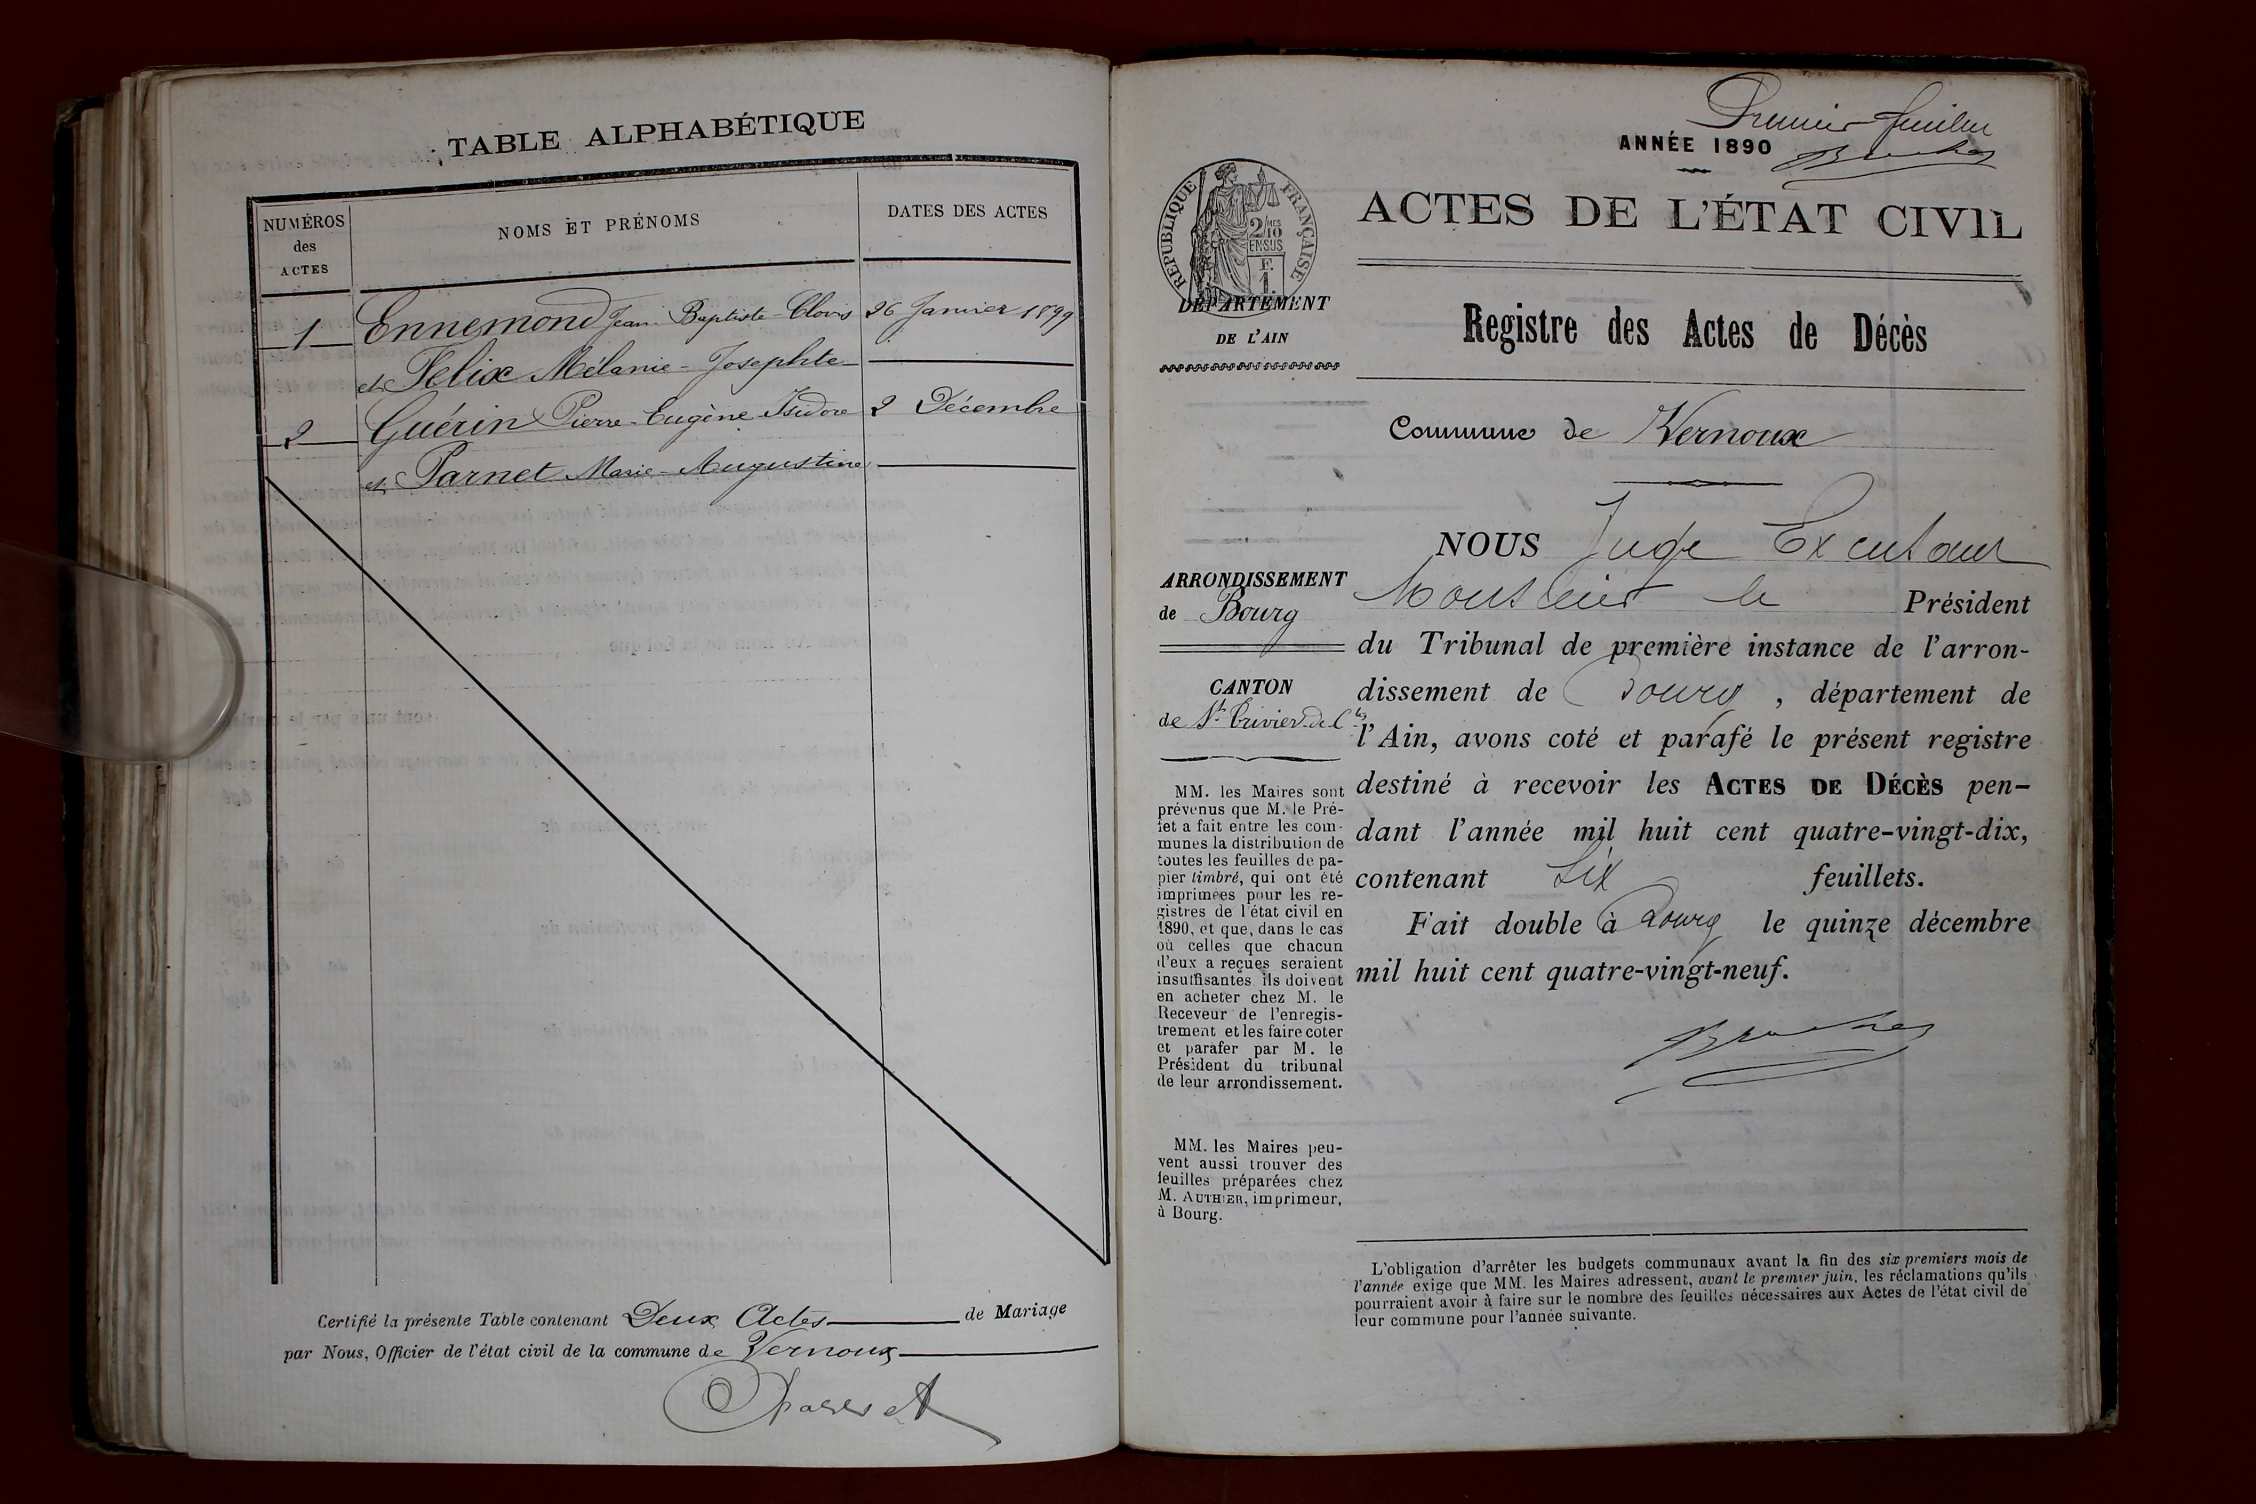 TABLE ALPHABÉTIQUE
NUMÉROS
des
ACTES
NOMS ET PRÉNOMS
DATES DES ACTES
1 Ennemond Jean-Baptiste-Clovis 26 Janvier 1899
et Felix Mélanie-Josephte
2 Guérin Pierre-Eugène-Isidore 2 Décembre
et Parnet Marie-Augustine
Certifié la présente Table contenant Deux Actes de Mariage
par Nous, Officier de l'état civil de la commune de Vernoux
Premier feuillet
ANNÉE 1890
RÉPUBLIQUE FRANÇAISE
2/10
EN SUS
F.
1
DÉPARTEMENT
DE L'AIN
ACTES DE L'ÉTAT CIVIL
Registre des Actes de Décès
Commune de Vernoux
ARRONDISSEMENT
de Bourg
CANTON
de St Trivier-de-Ctes
MM. les Maires sont
prévenus que M. le Pré-
fet a fait entre les com-
munes la distribution de
toutes les feuilles de pa-
pier timbré, qui ont été
imprimées pour les re-
gistres de l'état civil en
1890, et que, dans le cas
où celles que chacun
d'eux a reçues seraient
insuffisantes ils doivent
en acheter chez M. le
Receveur de l'enregis-
trement et les faire coter
et parafer par M. le
Président du tribunal
de leur arrondissement.
MM. les Maires peu-
vent aussi trouver des
feuilles préparées chez
M. AUTHIER, imprimeur,
à Bourg.
NOUS Juge
Monsieur le Président
du Tribunal de première instance de l'arron-
dissement de Bourg, département de
l'Ain, avons coté et parafé le présent registre
destiné à recevoir les ACTES DE DÉCÈS pen-
dant l'année mil huit cent quatre-vingt-dix,
contenant Six feuillets.
Fait double à Bourg le quinze décembre
mil huit cent quatre-vingt-neuf.
L'obligation d'arrêter les budgets communaux avant la fin des six premiers mois de
l'année exige que MM. les Maires adressent, avant le premier juin, les réclamations qu'ils
pourraient avoir à faire sur le nombre des feuilles nécessaires aux Actes de l'état civil de
leur commune pour l'année suivante.